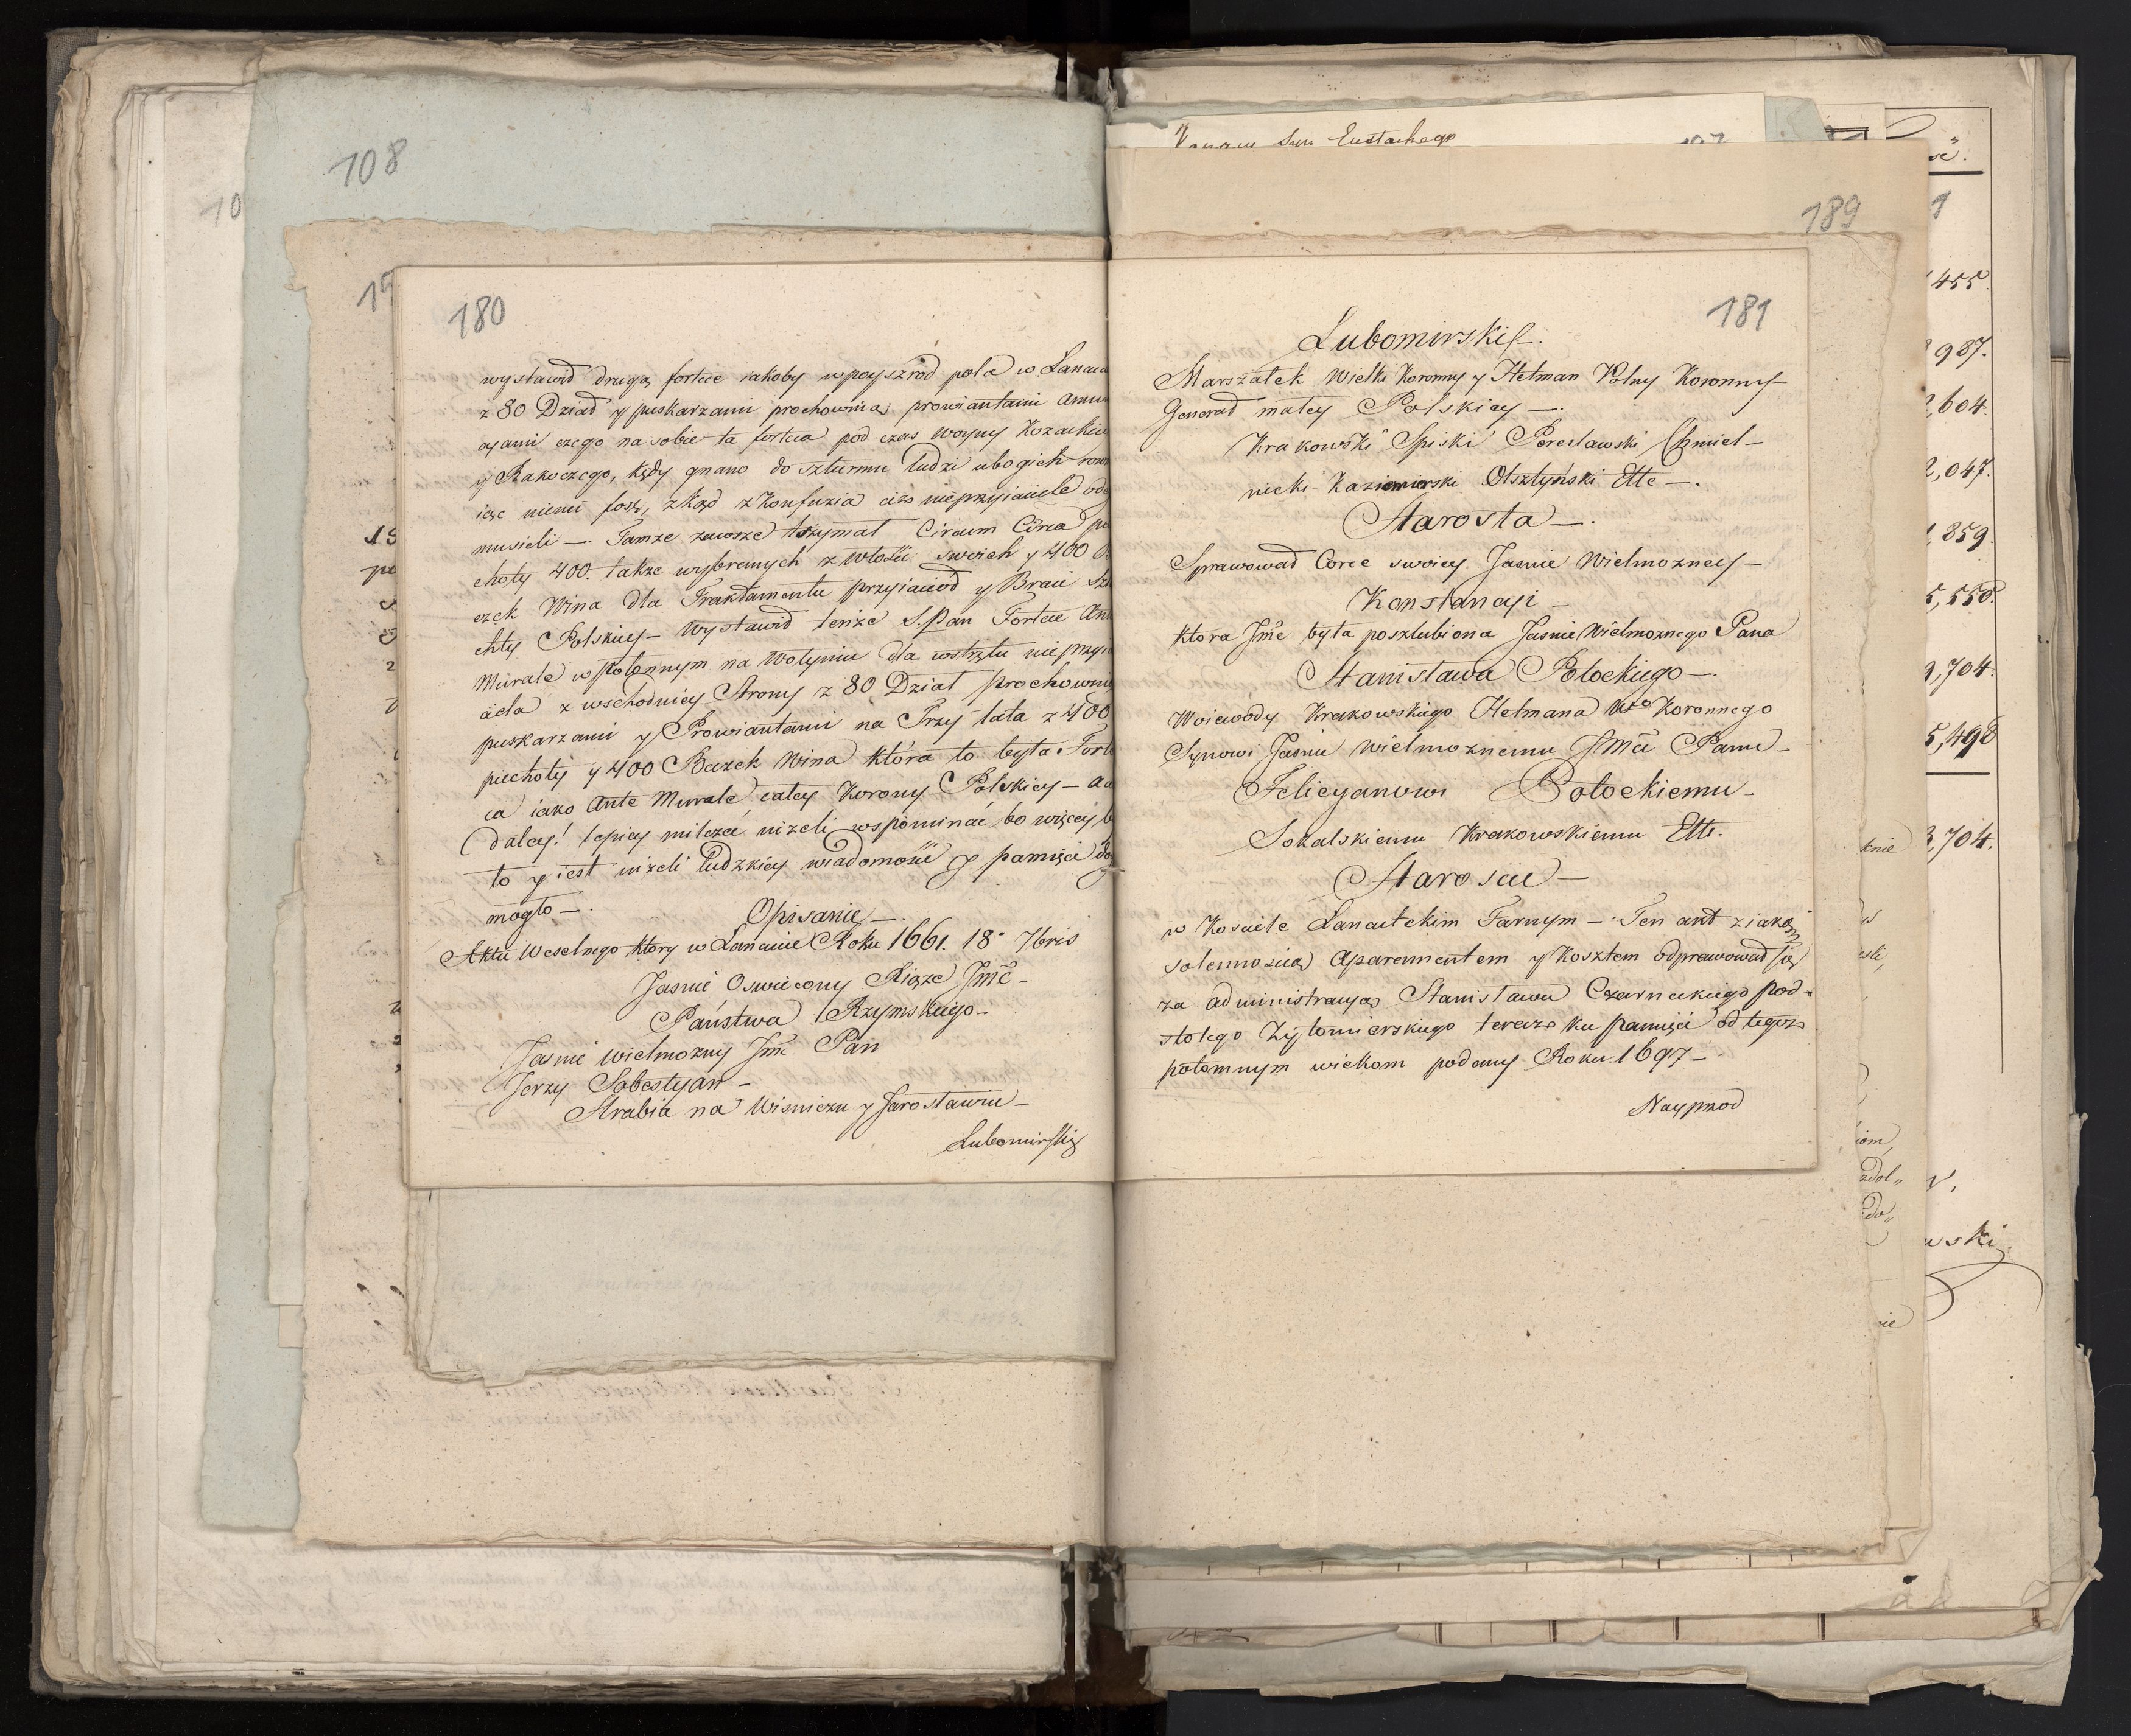 108
10
19
180
wystawił drugą fortece iakoby wpoyszrod pola w Lanau
z 80 Dział y puskarzami prochownią prowiantami Amu
cyami czego na sobie ta forteca pod czas woyny Kozackie
y Rakoczego, kędy gnano do szturmu ludzi ubogich
iąc niemi fosę, zkąd z Konfuzia ciż nieprzyiaciele ode
musieli —. Tamze zawsze trzymał Circum Circa pie
choty 400. także wybrannych z włości swoich y 400 B
czek Wina dla Traktamentu przyiacioł y Braci Szl
chty Polskiey — Wystawił tenże S. Pan Fortece Ant
Murale w Połonnym na Wołyniu dla wstrętu nieprzyi
aciela z wschodniey Strony z 80 Dział prochownią
puskarzami y Prowiantami na Trzy lata z 400
piechoty y 400 Baczek Wina która to była Forte
ca iako Ante Murale całey Korony Polskiey — a co
daley! lepiey milczeć niżeli wspominać bo więcey b
to y iest niżeli ludzkiey wiadomości y pamięci do
mogło —.
Opisanie —.
Aktu Weselnego który w Lancucie Roku 1661. 18. 7bris
Jasnie Oswiecony Xiąze Jmć —
Państwa Rzymskiego —
Jasnie wielmozny Jmć Pan
Jerzy Sebestyan —
Hrabia na Wisniczu y Jarosławiu —
Lubomirski
181
Lubomirski —.
Marszałek Wielki Koronny y Hetman Polny Koronny —
Generał małey Polskiey —.
Krakowski Spiski Peresławski Chmiel —
nicki Kazimirski Olsztyński Ette —.
Starosta —.
Sprawował Corce swoiey Jasnie Wielmozney —
Konstancyi —
która Jmć była poszlubiona Jasnie Wielmoznego Pana
Stanisława Potockiego —.
Woiewody Krakowskiego Hetmana Wgo Koronnego
Synowi Jasnie wielmoznemu JMCi Panu —
Felicyanowi Potockiemu —
Sokalskiemu Krakowskiemu Ette.
Starościе —
w Kosciele Lancutckim Farnym — Ten akt z iaką
solennoscią Aparenmentem y Kosztem odprawował się
za administracyą Stanisława Czarneckiego Pod-
stolego Zytomierskiego teraz ku pamięci od tegoz
potomnym wiekom podany Roku 1697 —.
Nayprzod
189
syn Eustachego
107
1
455.
987.
604.
2,047.
859.
5,550.
704.
5,498
704.
knie
zdol„
wski